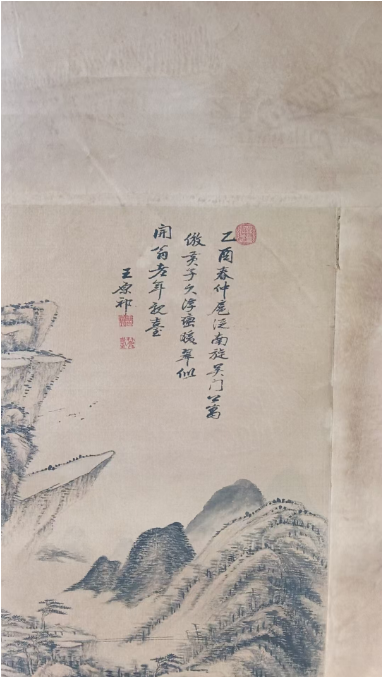 乙酉春仲扈從南旋吴门公寓
倣黄子久浮巒暖翠似
開翁老年親臺
王原祁